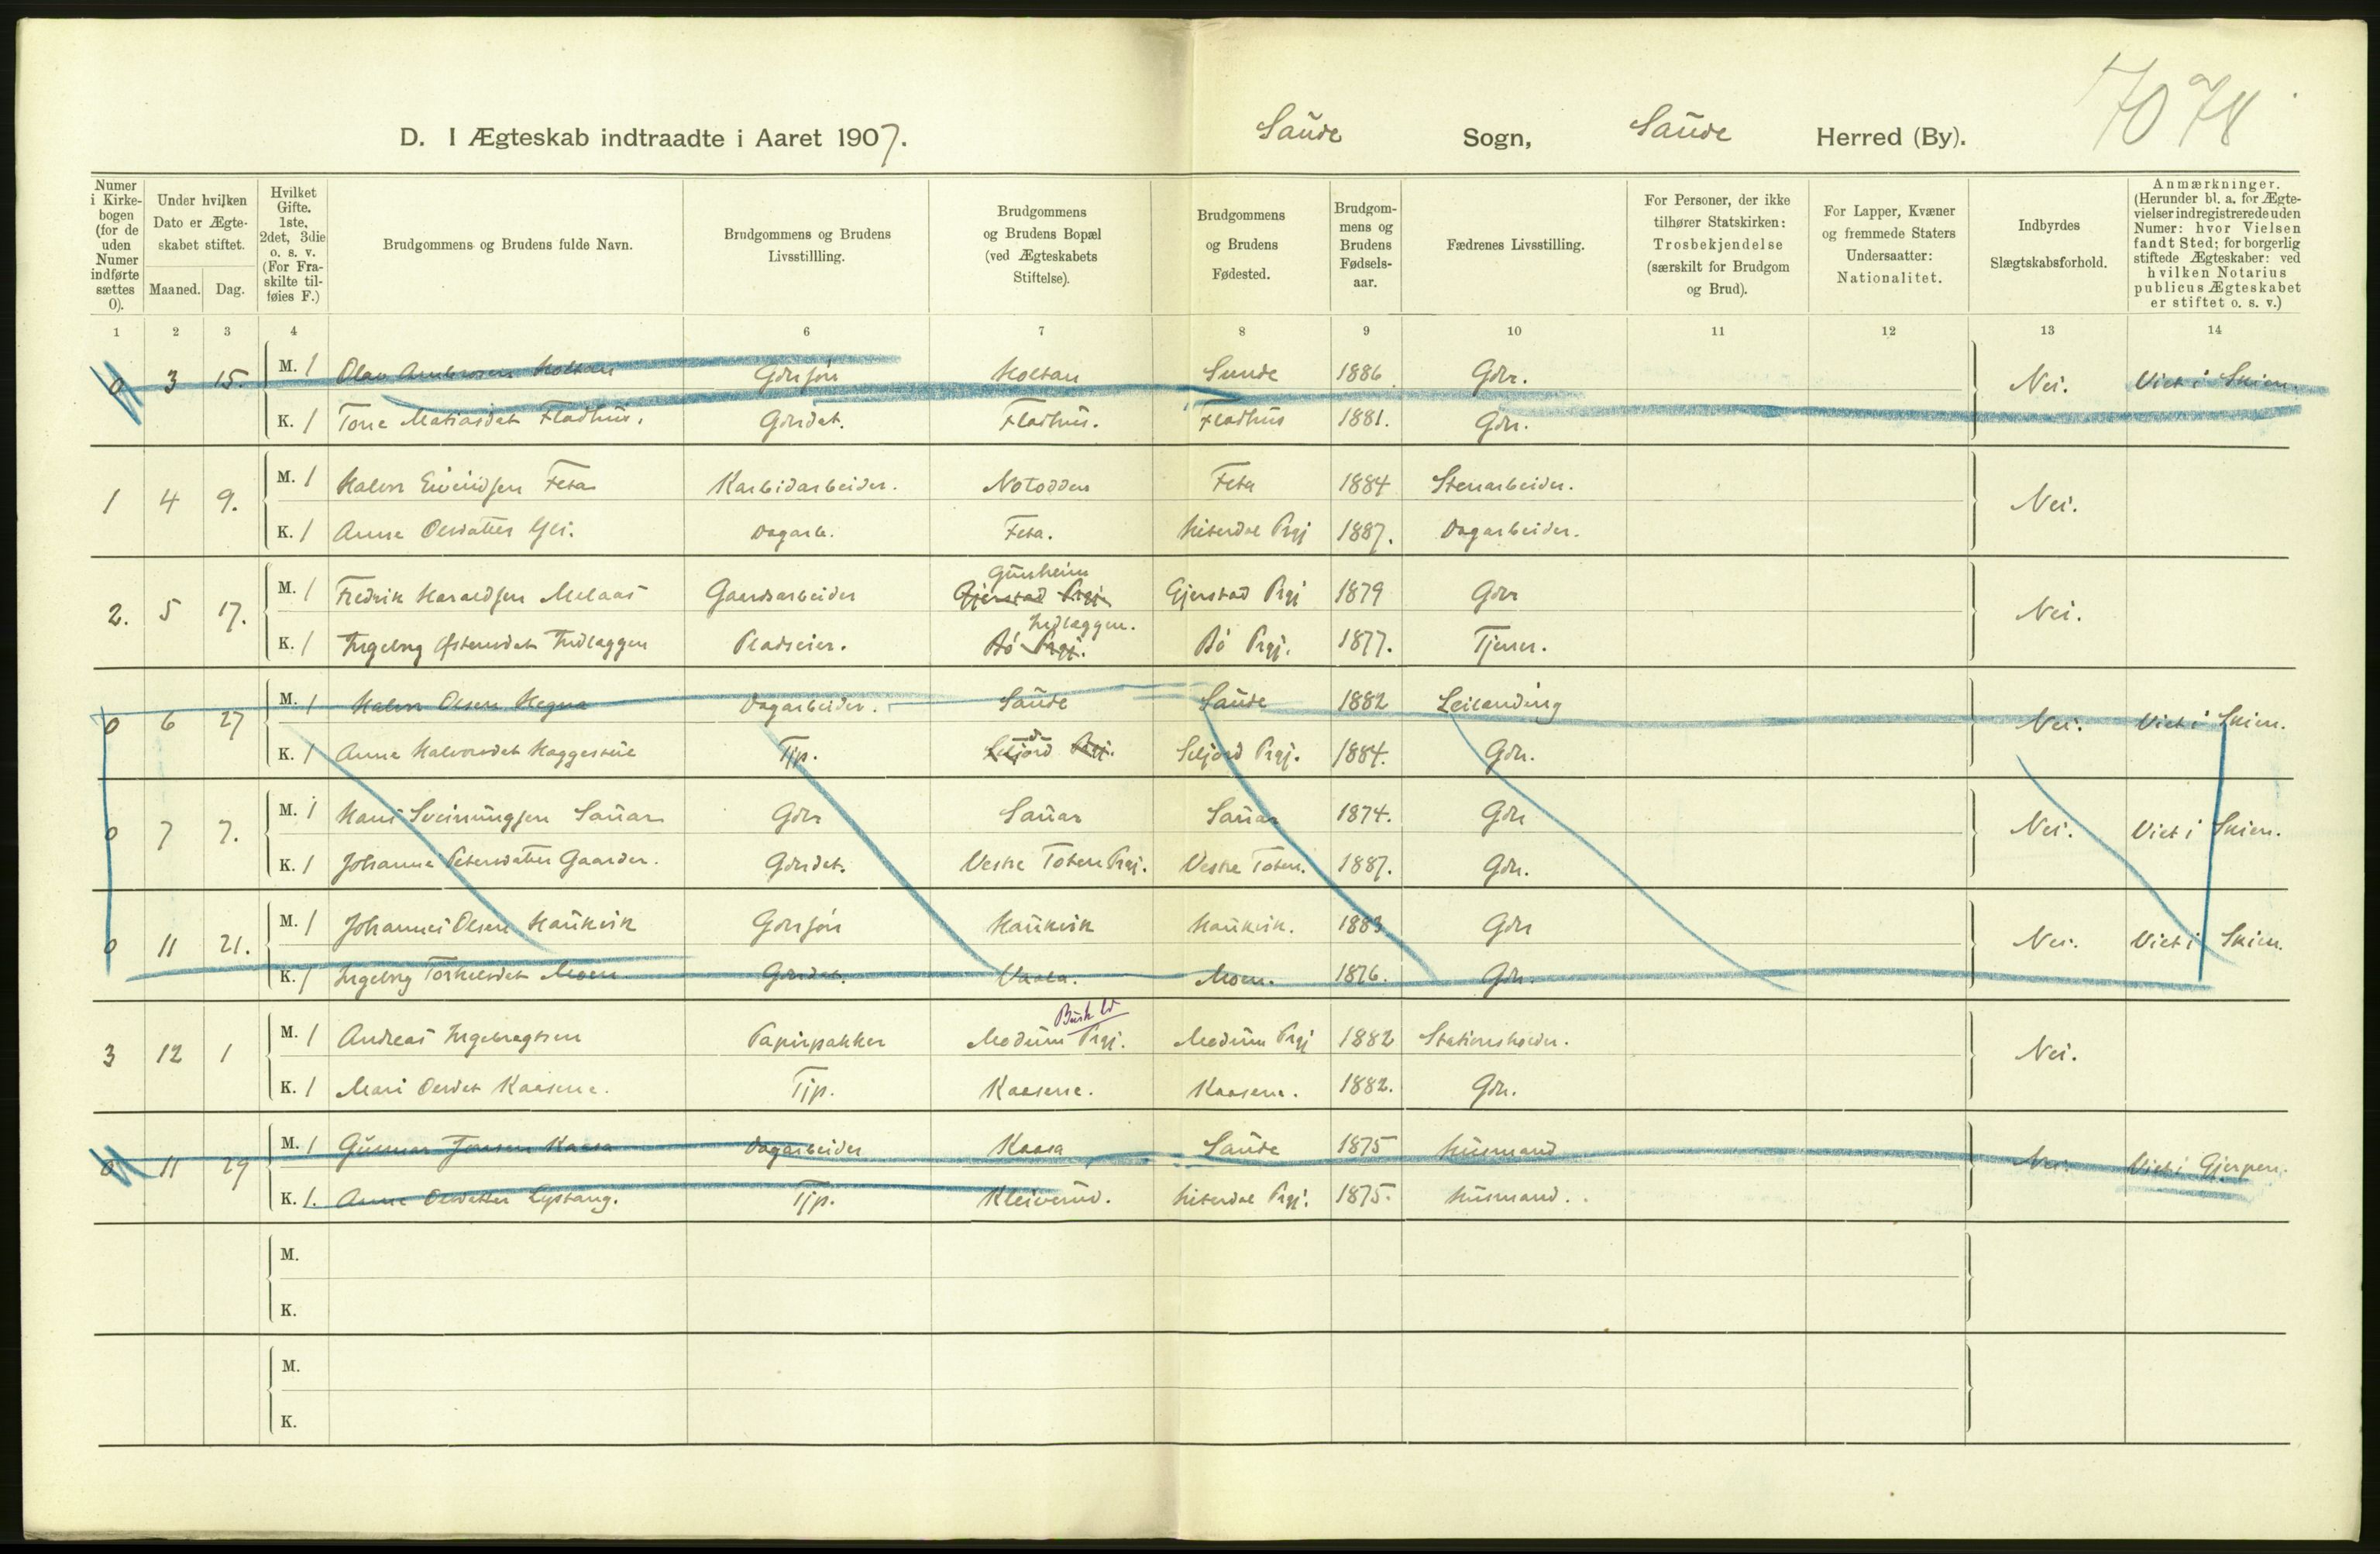 7078
D. I Ægteskab indtraadte i Aaret 1907. Saude Sogn, Saude Herred (By).
Numer i Kirke-bogen (for de uden Numer indførte sættes 0).
Under hvilken Dato er Ægte-skabet stiftet.
Maaned. Dag.
Hvilket Gifte. 1ste, 2det, 3die o. s. v. (For Fra-skilte til-føies F.)
Brudgommens og Brudens fulde Navn.
Brudgommens og Brudens Livsstillling.
Brudgommens og Brudens Bopæl (ved Ægteskabets Stiftelse).
Brudgommens og Brudens Fødested.
Brudgom-mens og Brudens Fødsels-aar.
Fædrenes Livsstilling.
For Personer, der ikke tilhører Statskirken: Trosbekjendelse (særskilt for Brudgom og Brud).
For Lapper, Kvæner og fremmede Staters Undersaatter: Nationalitet.
Indbyrdes Slægtskabsforhold.
Anmærkninger. (Herunder bl. a. for Ægte-vielser indregistrerede uden Numer: hvor Vielsen fandt Sted; for borgerlig stiftede Ægteskaber: ved hvilken Notarius publicus Ægteskabet er stiftet o. s. v.)
1 2 3 4 6 7 8 9 10 11 12 13 14
0 3 15. M. 1 Olav Holtan Gdrsøn Holtan Sunde 1886 Gdr. Nei. Viet i Skien.
K. 1 Tone Matiasdat Fladhus. Gdrdat. Fladhus. Fladhus 1881. Gdr.
1 4 9. M. 1 Halvor Eivindsen Feta Karbidarbeider. Notodden Feta 1884 Stenarbeider. Nei.
K. 1 Anne Olsdatter Dagarb. Feta. Hiterdal Prgj 1887. Dagarbeider.
2. 5 17. M. 1 Fredrik Haraldsen Melaas Gaardsarbeider Gjerstad Prgj. Gunheim Gjerstad Prgj 1879 Gdr Nei.
K. 1 Ingebrg Østensdat Indlaggen Pladseier. Bø Prgj. Indlaggen. Bø Prgj. 1877. Tjener.
0 6 27 M. 1 Halvor Olsen Hegna Dagarbeider. Saude Saude 1882 Leilending Nei. Viet i Skien.
K. 1 Anne Halvorsdat Haggestul Tjp. Seljord Prgj. Seljord Prgj. 1884. Gdr.
0 7 7. M. 1 Hans Sveinungsen Sauar Gdr Sauar Sauar 1874. Gdr Nei. Viet i Skien.
K. 1 Johanne Petersdatter Gaarder. Gdrdat. Vestre Toten Prgj. Vestre Toten. 1887. Gdr.
0 11 21. M. 1 Johannes Olsen Haukvik Gdrsøn Haukvik Haukvik. 1883 Gdr Nei. Viet i Skien.
K. 1 Ingebrg Torkelsdat Moen Gdrdat. Vaala. Moen. 1876. Gdr.
3 12 1 M. 1 Andreas Ingebregtsen Papirpakker Modum Prgj. Modum Prgj 1882 Stationsholder. Nei.
K. 1 Mari Olsdat Kaasene. Tjp. Kaasene. Kaasene. 1882. Gdr.
0 11 29 M. 1 Gunnar Jonsen Kaasa Dagarbeider Kaasa Saude 1875 Husmand Nei. Viet i Gjerpen.
K. 1. Anne Olsdatter Lystang. Tjp. Kleiverud. Hiterdal Prgj. 1875. Husmand.
M.
K.
M.
K.